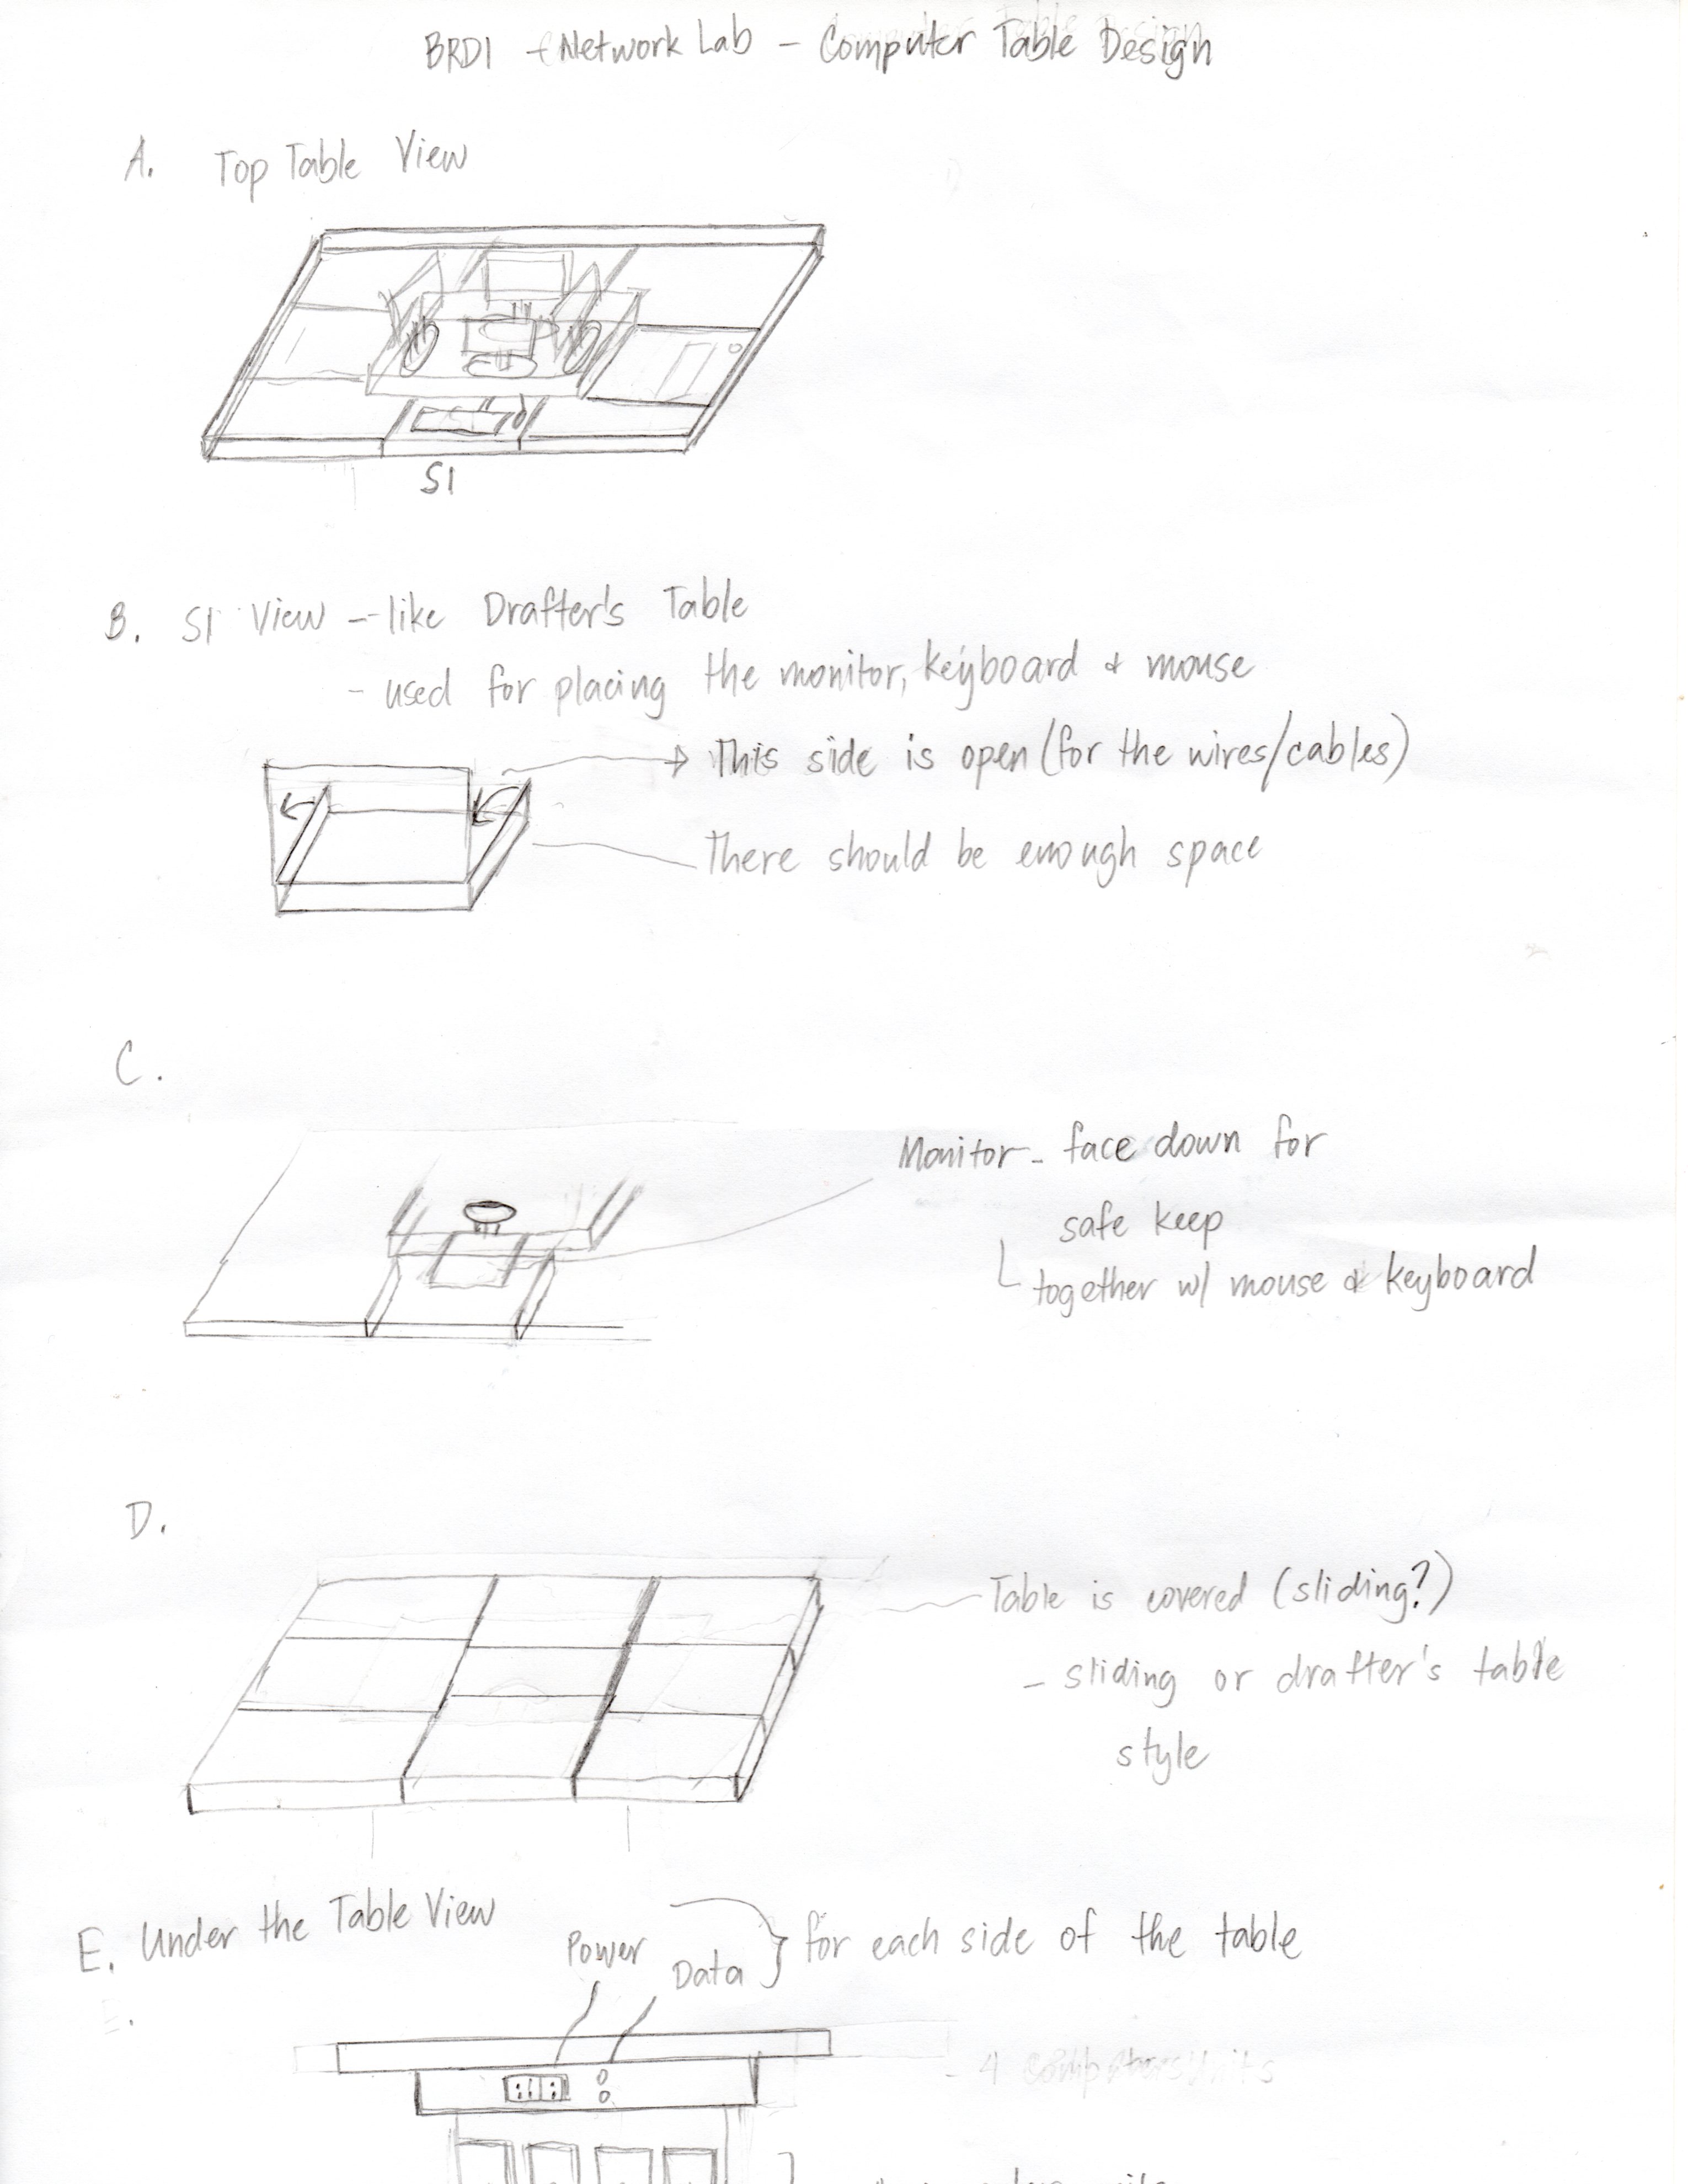 BRD1 - Network Lab - Computer Table Design
A. Top Table View
S1
B. S1 View - like Drafter's Table
- used for placing the monitor, keyboard & mouse
→ This side is open (for the wires/cables)
There should be enough space
C.
Monitor - face down for
safe keep
together w/ mouse & keyboard
D.
Table is covered (sliding?)
- sliding or drafter's table
style
E. Under the Table View
Power
Data } for each side of the table
E.
- 4 computer units